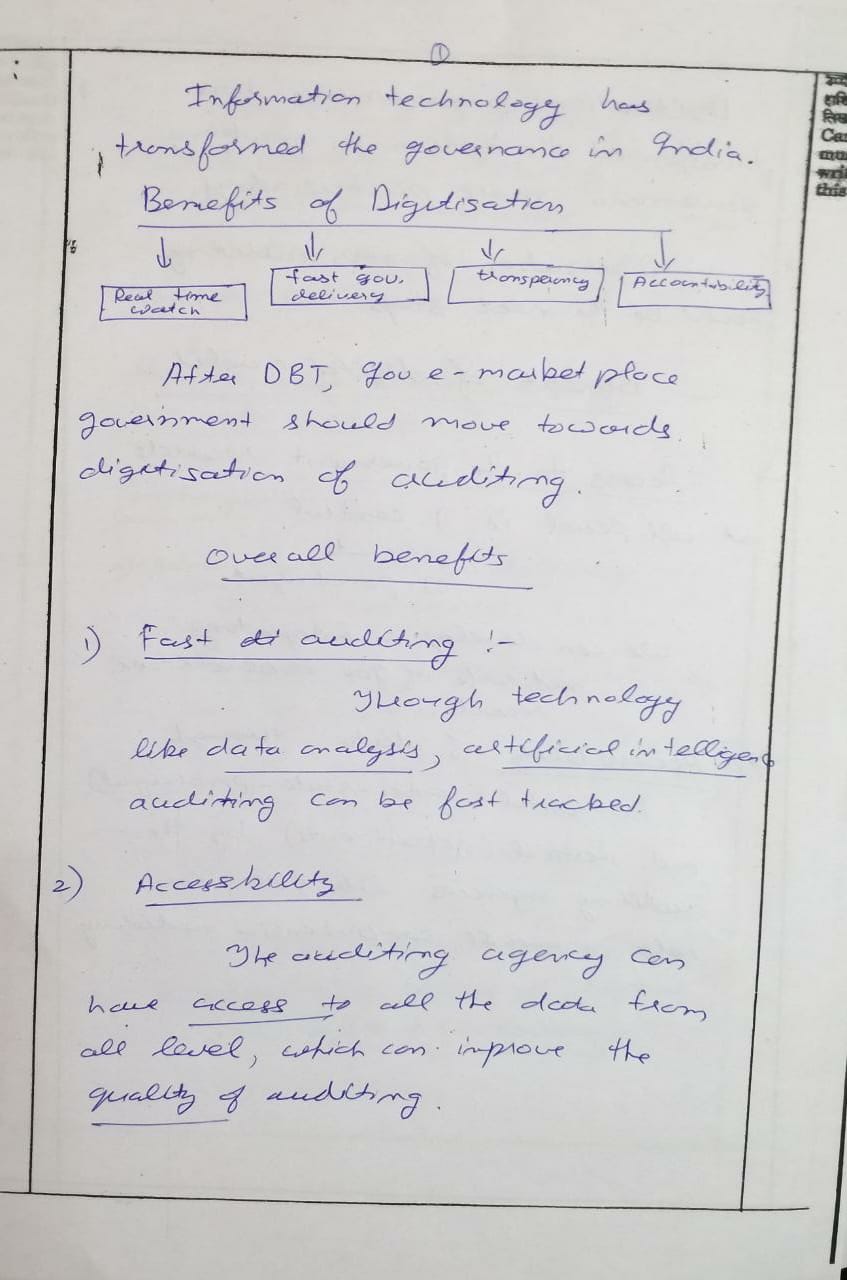 ①
Information technology has
transformed the governance in India.
Benefits of Digitisation
Real time watch
fast gov. delivery
transperancy
Accountability
After DBT, gov e-market place
government should move towards
digitisation of auditing.
Overall benefits
1) Fast auditing :-
Through technology
like data analysis, artificial intelligenc
auditing can be fast tracked.
2) Accessbility
The auditing agency can
have access to all the data from
all level, which can improve the
quality of auditing.
Can
mus
writ
this